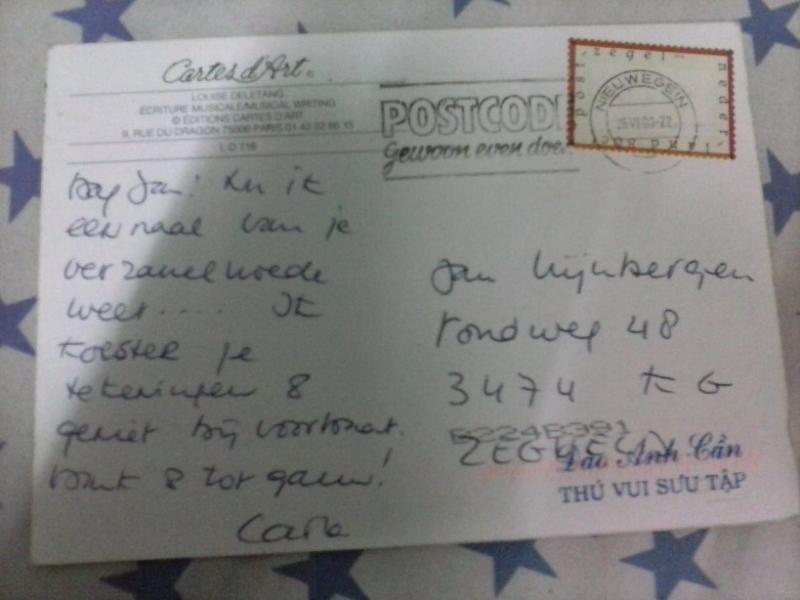 Cartes d'Art
LOUISE DELETANG
ÉCRITURE MUSICALE/MUSICAL WRITING
© ÉDITIONS CARTES D'ART
9, RUE DU DRAGON 75006 PARIS 01 42 22 86 15
L D 116
POSTCODE
gewoon even doen
post zegel neder
NIEUWEGEIN
Dag Jan! Nu ik
eenmaal van je
verzamelwoede
weet.... Ik
koester je
tekeningen &
geniet bij voorbaat.
Dank & tot gauw!
Carla
Jan
rondweg 48
3474 KG
ZEGVELD
Đào Anh Cần
THÚ VUI SƯU TẬP